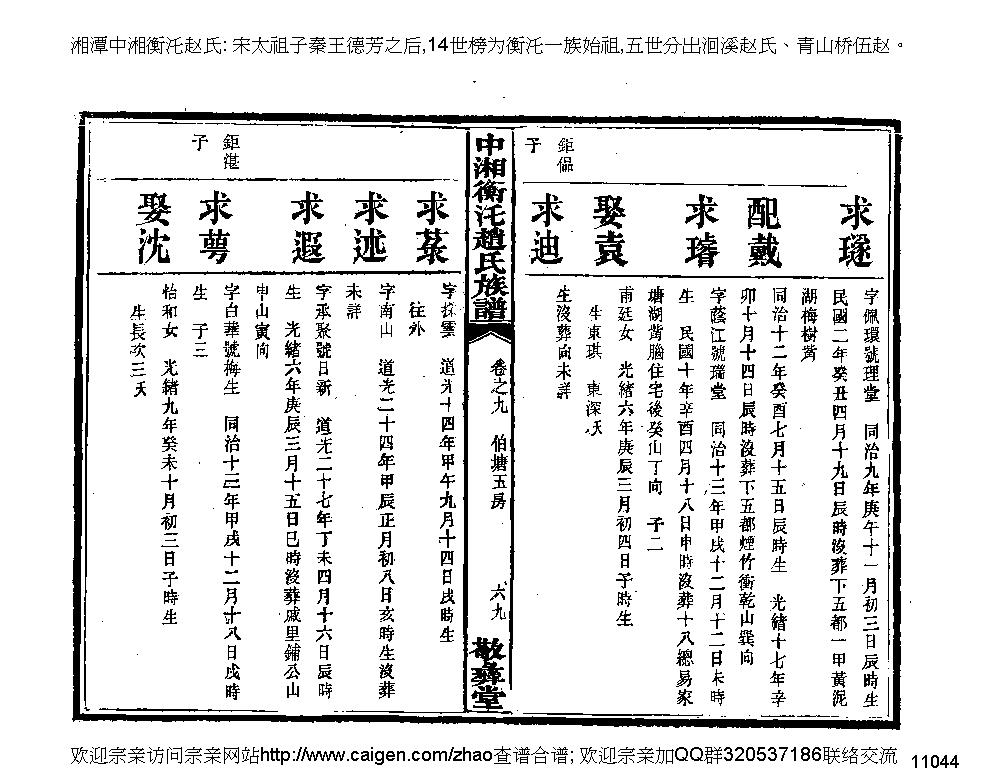 湘潭中湘衡沱赵氏: 宋太祖子秦王德芳之后,14世榜为衡沱一族始祖,五世分出洄溪赵氏、青山桥伍赵。
求璲
字佩環號理堂 同治九年庚午十一月初三日辰時生
民國二年癸丑四月十九日辰時沒葬下五都一甲黃泥
湖梅樹嵴
配戴
同治十二年癸酉七月十五日辰時生 光緒十七年辛
卯十月十四日辰時沒葬下五都煙竹衝乾山巽向
求璿
字蔭江號瑞堂 同治十三年甲戌十二月十二日未時
生 民國十年辛酉四月十八日申時沒葬十八總易家
塘湖嵴腦住宅後癸山丁向 子二
娶袁
甫廷女 光緒六年庚辰三月初四日子時生
生東琪 東深夭
鉅偘
子
求迪
生沒葬向未詳
中湘衡沱趙氏族譜
卷之九 伯塘五房 六九
敬彝堂
求菉
字採雲 道光十四年甲午九月十四日戌時生
往外
求述
字南山 道光二十四年甲辰正月初八日亥時生沒葬
未詳
求遐
字承聚號日新 道光二十七年丁未四月十六日辰時
生 光緒六年庚辰三月十五日巳時沒葬戚里鋪公山
申山寅向
鉅湛
子
求萼
字白華號梅生 同治十三年甲戌十二月十八日戌時
生 子三
娶沈
怡和女 光緒九年癸未十月初三日子時生
生長次三夭
欢迎宗亲访问宗亲网站http://www.caigen.com/zhao查谱合谱; 欢迎宗亲加QQ群320537186联络交流
11044